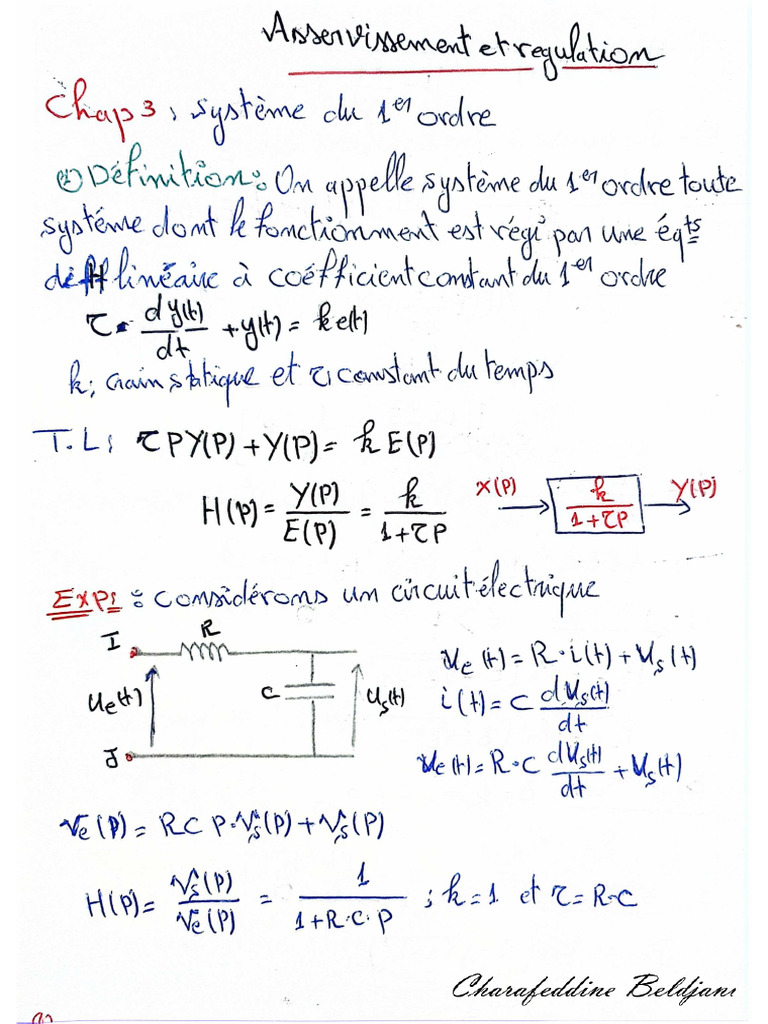 Asservissement et regulation
Chap 3 : système du 1er ordre
① Définition : On appelle système du 1er ordre toute
système dont le fonctionnment est régi par une éqts
diff linéaire à coéfficient constant du 1er ordre
τ · dy(t)/dt + y(t) = k e(t)
k ; Gain statique et τ ; constant du temps
T.L : τPY(P) + Y(P) = k E(P)
H(P) = Y(P)/E(P) = k/(1+τP)
X(P) → k/(1+τP) → Y(P)
Exp : : considérons un circuit électrique
I R
Ue(t) C Us(t)
J
Ue(t) = R·i(t) + Us(t)
i(t) = C dUs(t)/dt
Ue(t) = R·C dUs(t)/dt + Us(t)
Ve(P) = RC P·Vs(P) + Vs(P)
H(P) = Vs(P)/Ve(P) = 1/(1+R·C·P) ; k=1 et τ=R·C
Charafeddine Beldjani